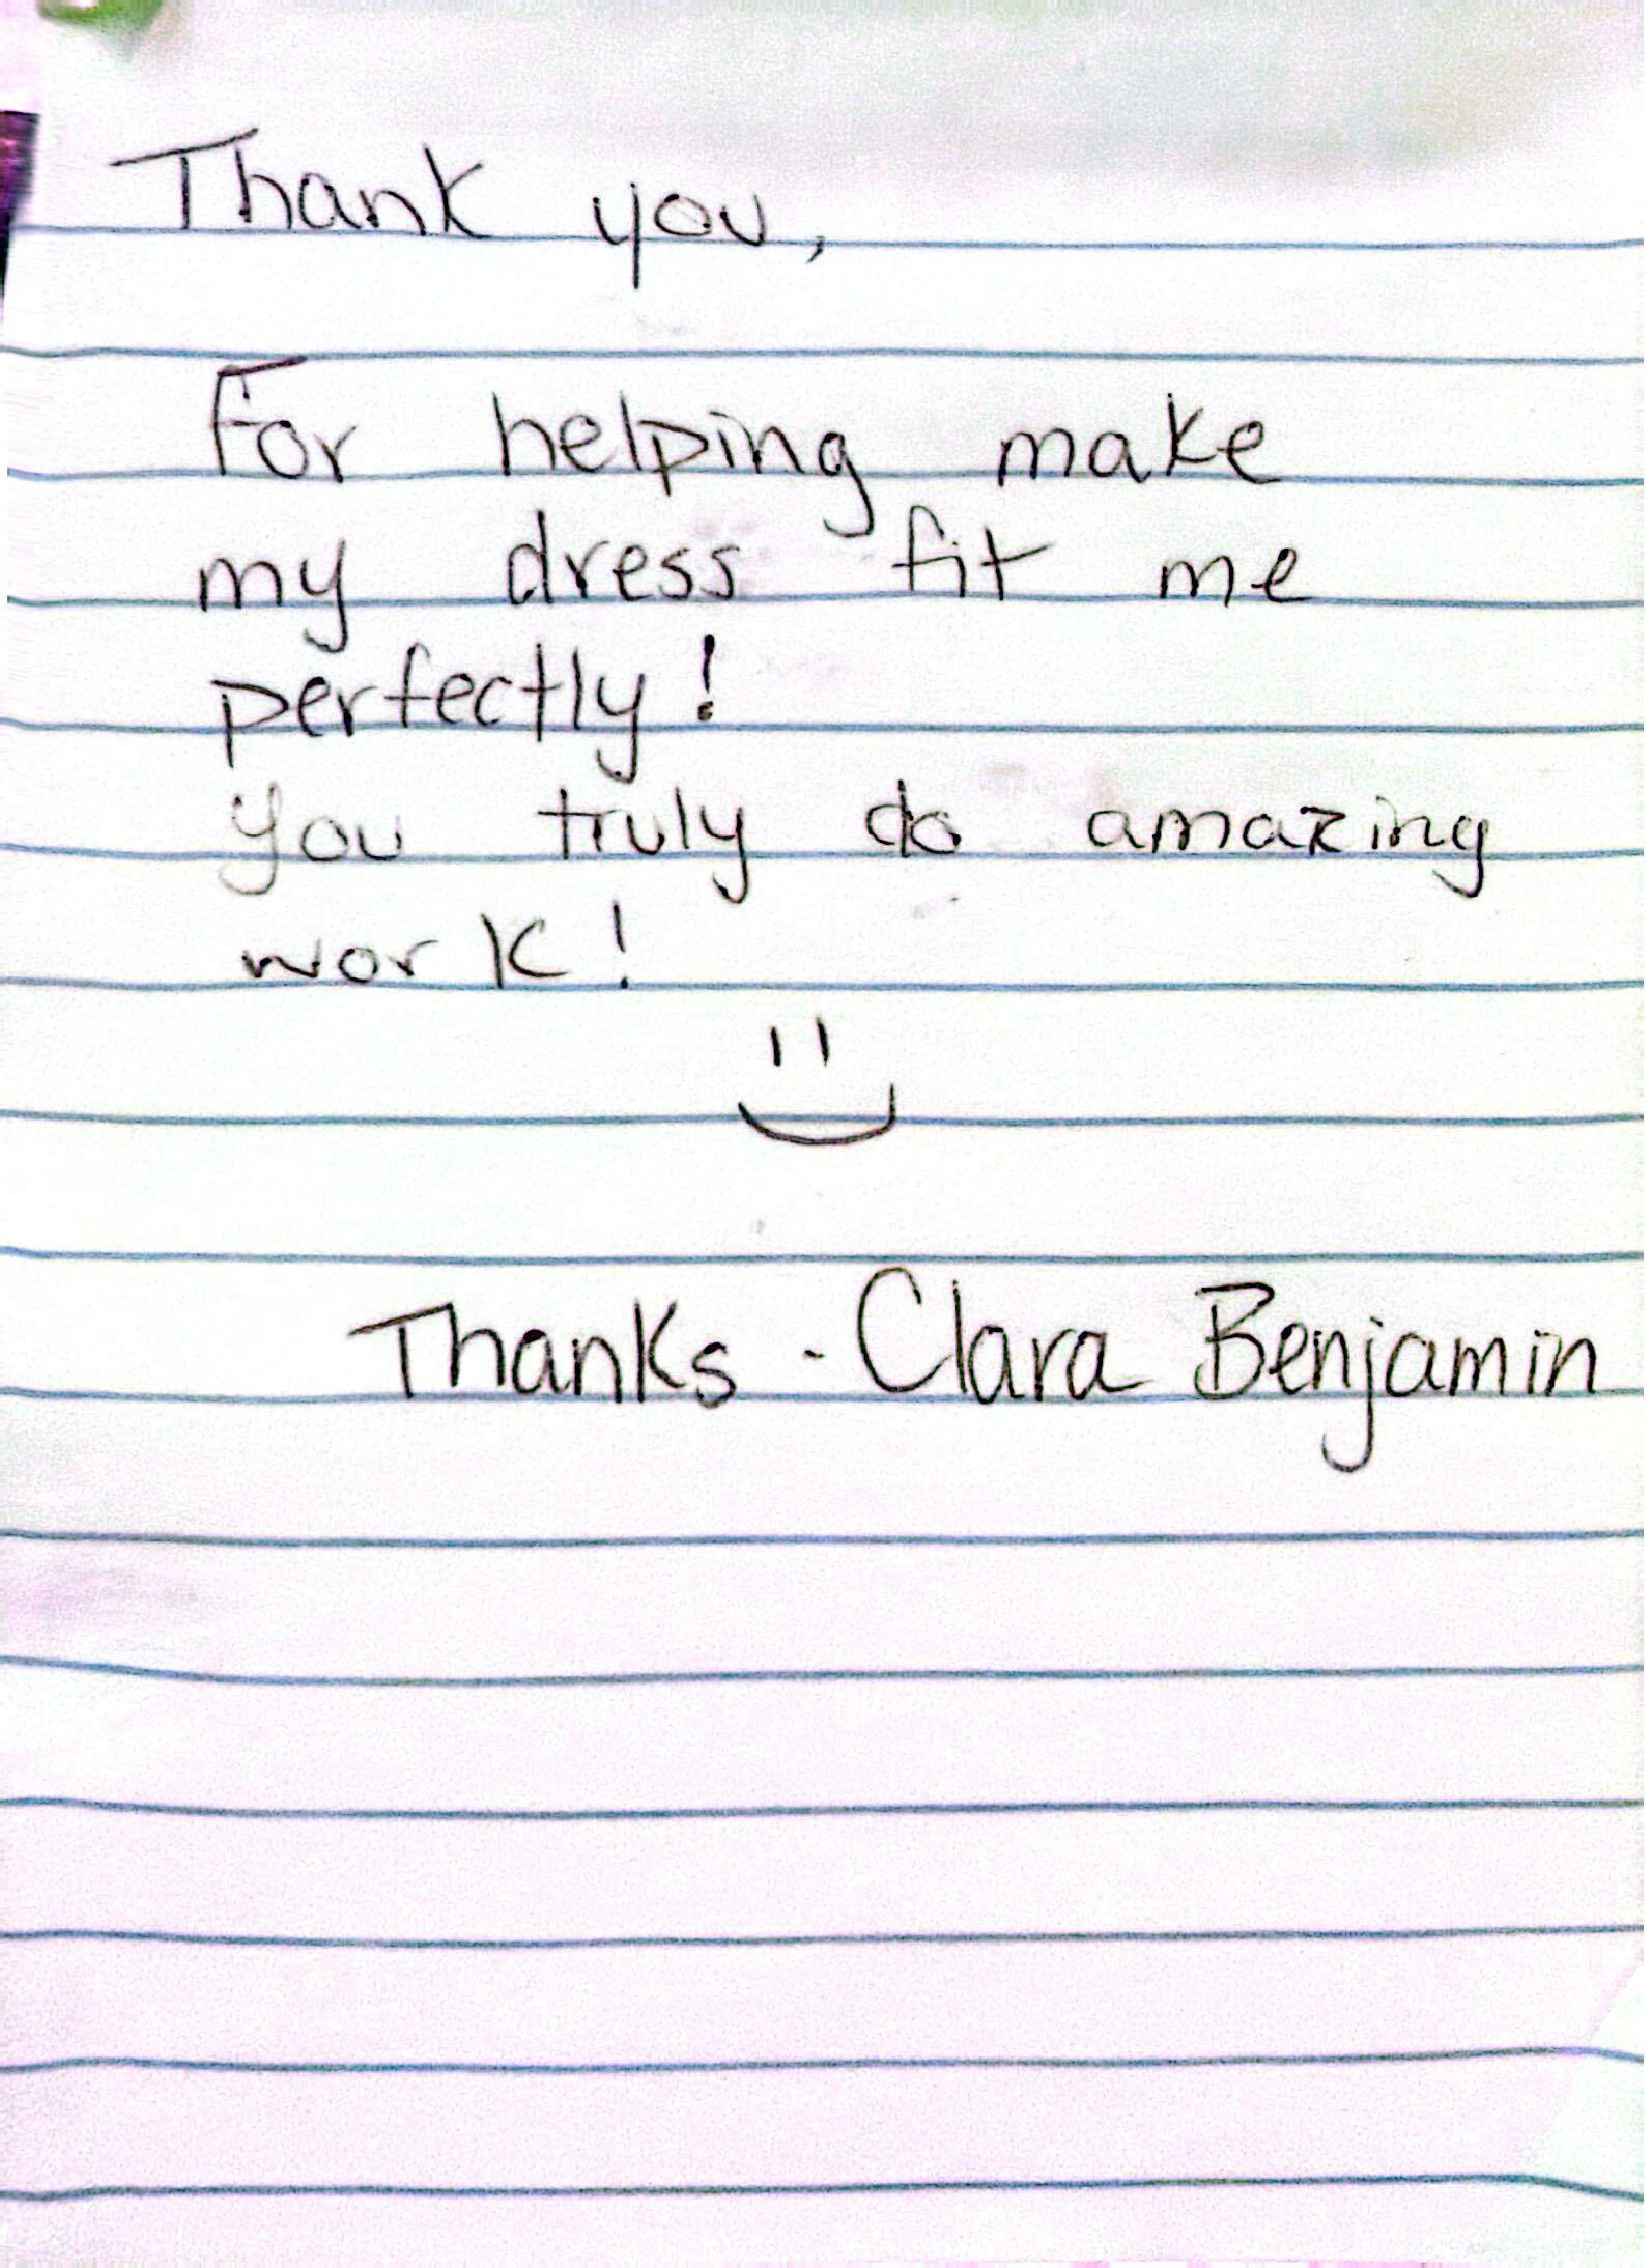 Thank you,
For helping make
my dress fit me
perfectly!
you truly do amazing
work!
Thanks - Clara Benjamin